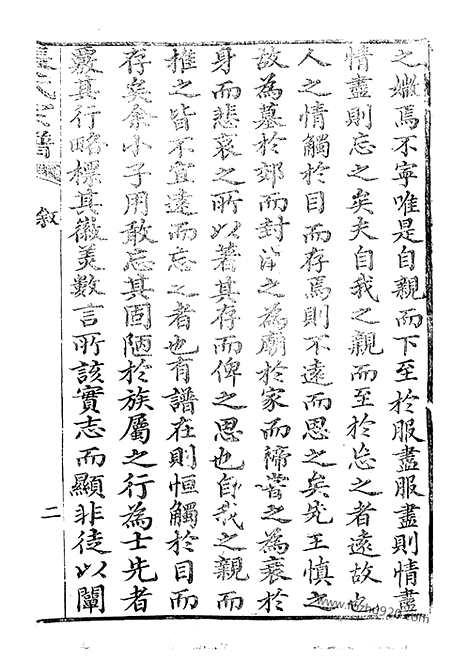 之㜫焉不寧唯是自親而下至於服盡服盡則情盡
情盡則忘之矣夫自我之親而至於忘之者遠故也
人之情觸於目而存焉則不遠而思之矣先王慎之
故為墓於郊而封溝之為廟於家而禘嘗之為衰於
身而悲哀之所以著其存而俾之思也自我之親而
推之皆不宜遠而忘之者也有譜在則恒觸於目而
存矣余小子用敢忘其固陋於族屬之行為士先者
覈其行略標其徽美數言所該實志而顯非徒以闡
氏宗譜
敘
二